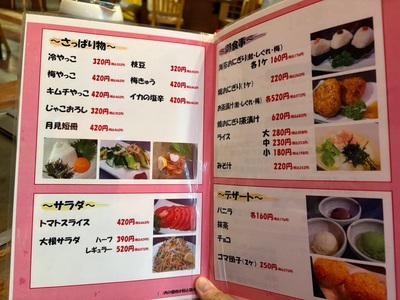 ～さっぱり物～
冷やっこ 320円
枝豆 320円
梅やっこ 420円
梅きゅう 420円
キムチやっこ 420円
イカの塩辛 420円
じゃこおろし 320円
月見短冊 420円
～サラダ～
トマトスライス 420円
大根サラダ ハーフ 390円
レギュラー 520円
～御食事～
各1ケ 160円
焼おにぎり(1ケ) 220円
お茶漬け(鮭・しぐれ・梅) 各520円
焼おにぎり茶漬け 620円
ライス 大 280円
中 230円
小 180円
みそ汁 220円
～デザート～
バニラ 各160円
抹茶
チョコ
ゴマ団子(2ケ) 250円